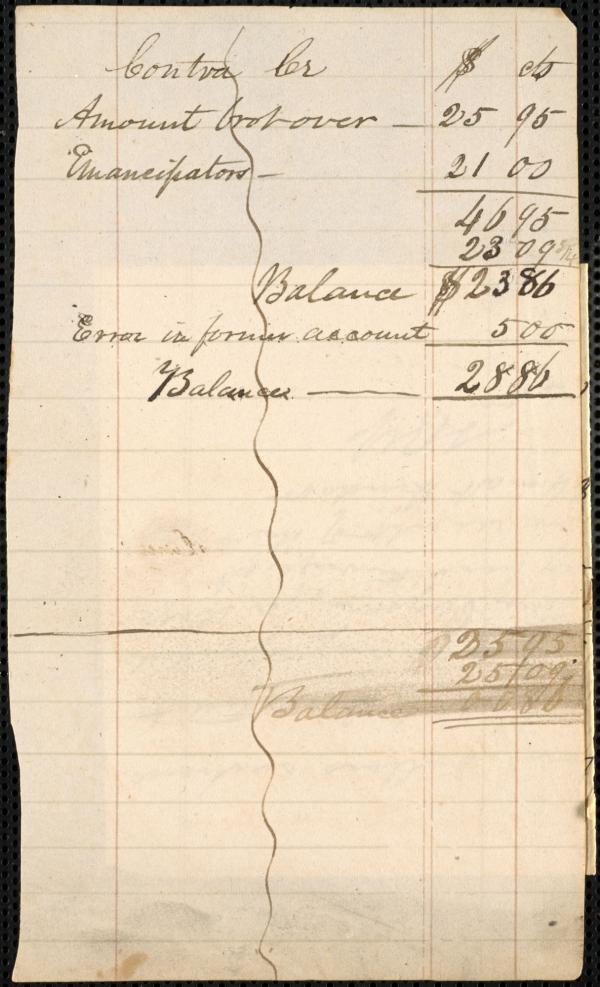 Contra Cr $ cts
Amount brot over — 25 95
Emancipators — 21 00
46 95
23 09
Balance $23 86
Error in former account 5 00
Balance —— 28 86
25 95
25 09
Balance 0 0 86